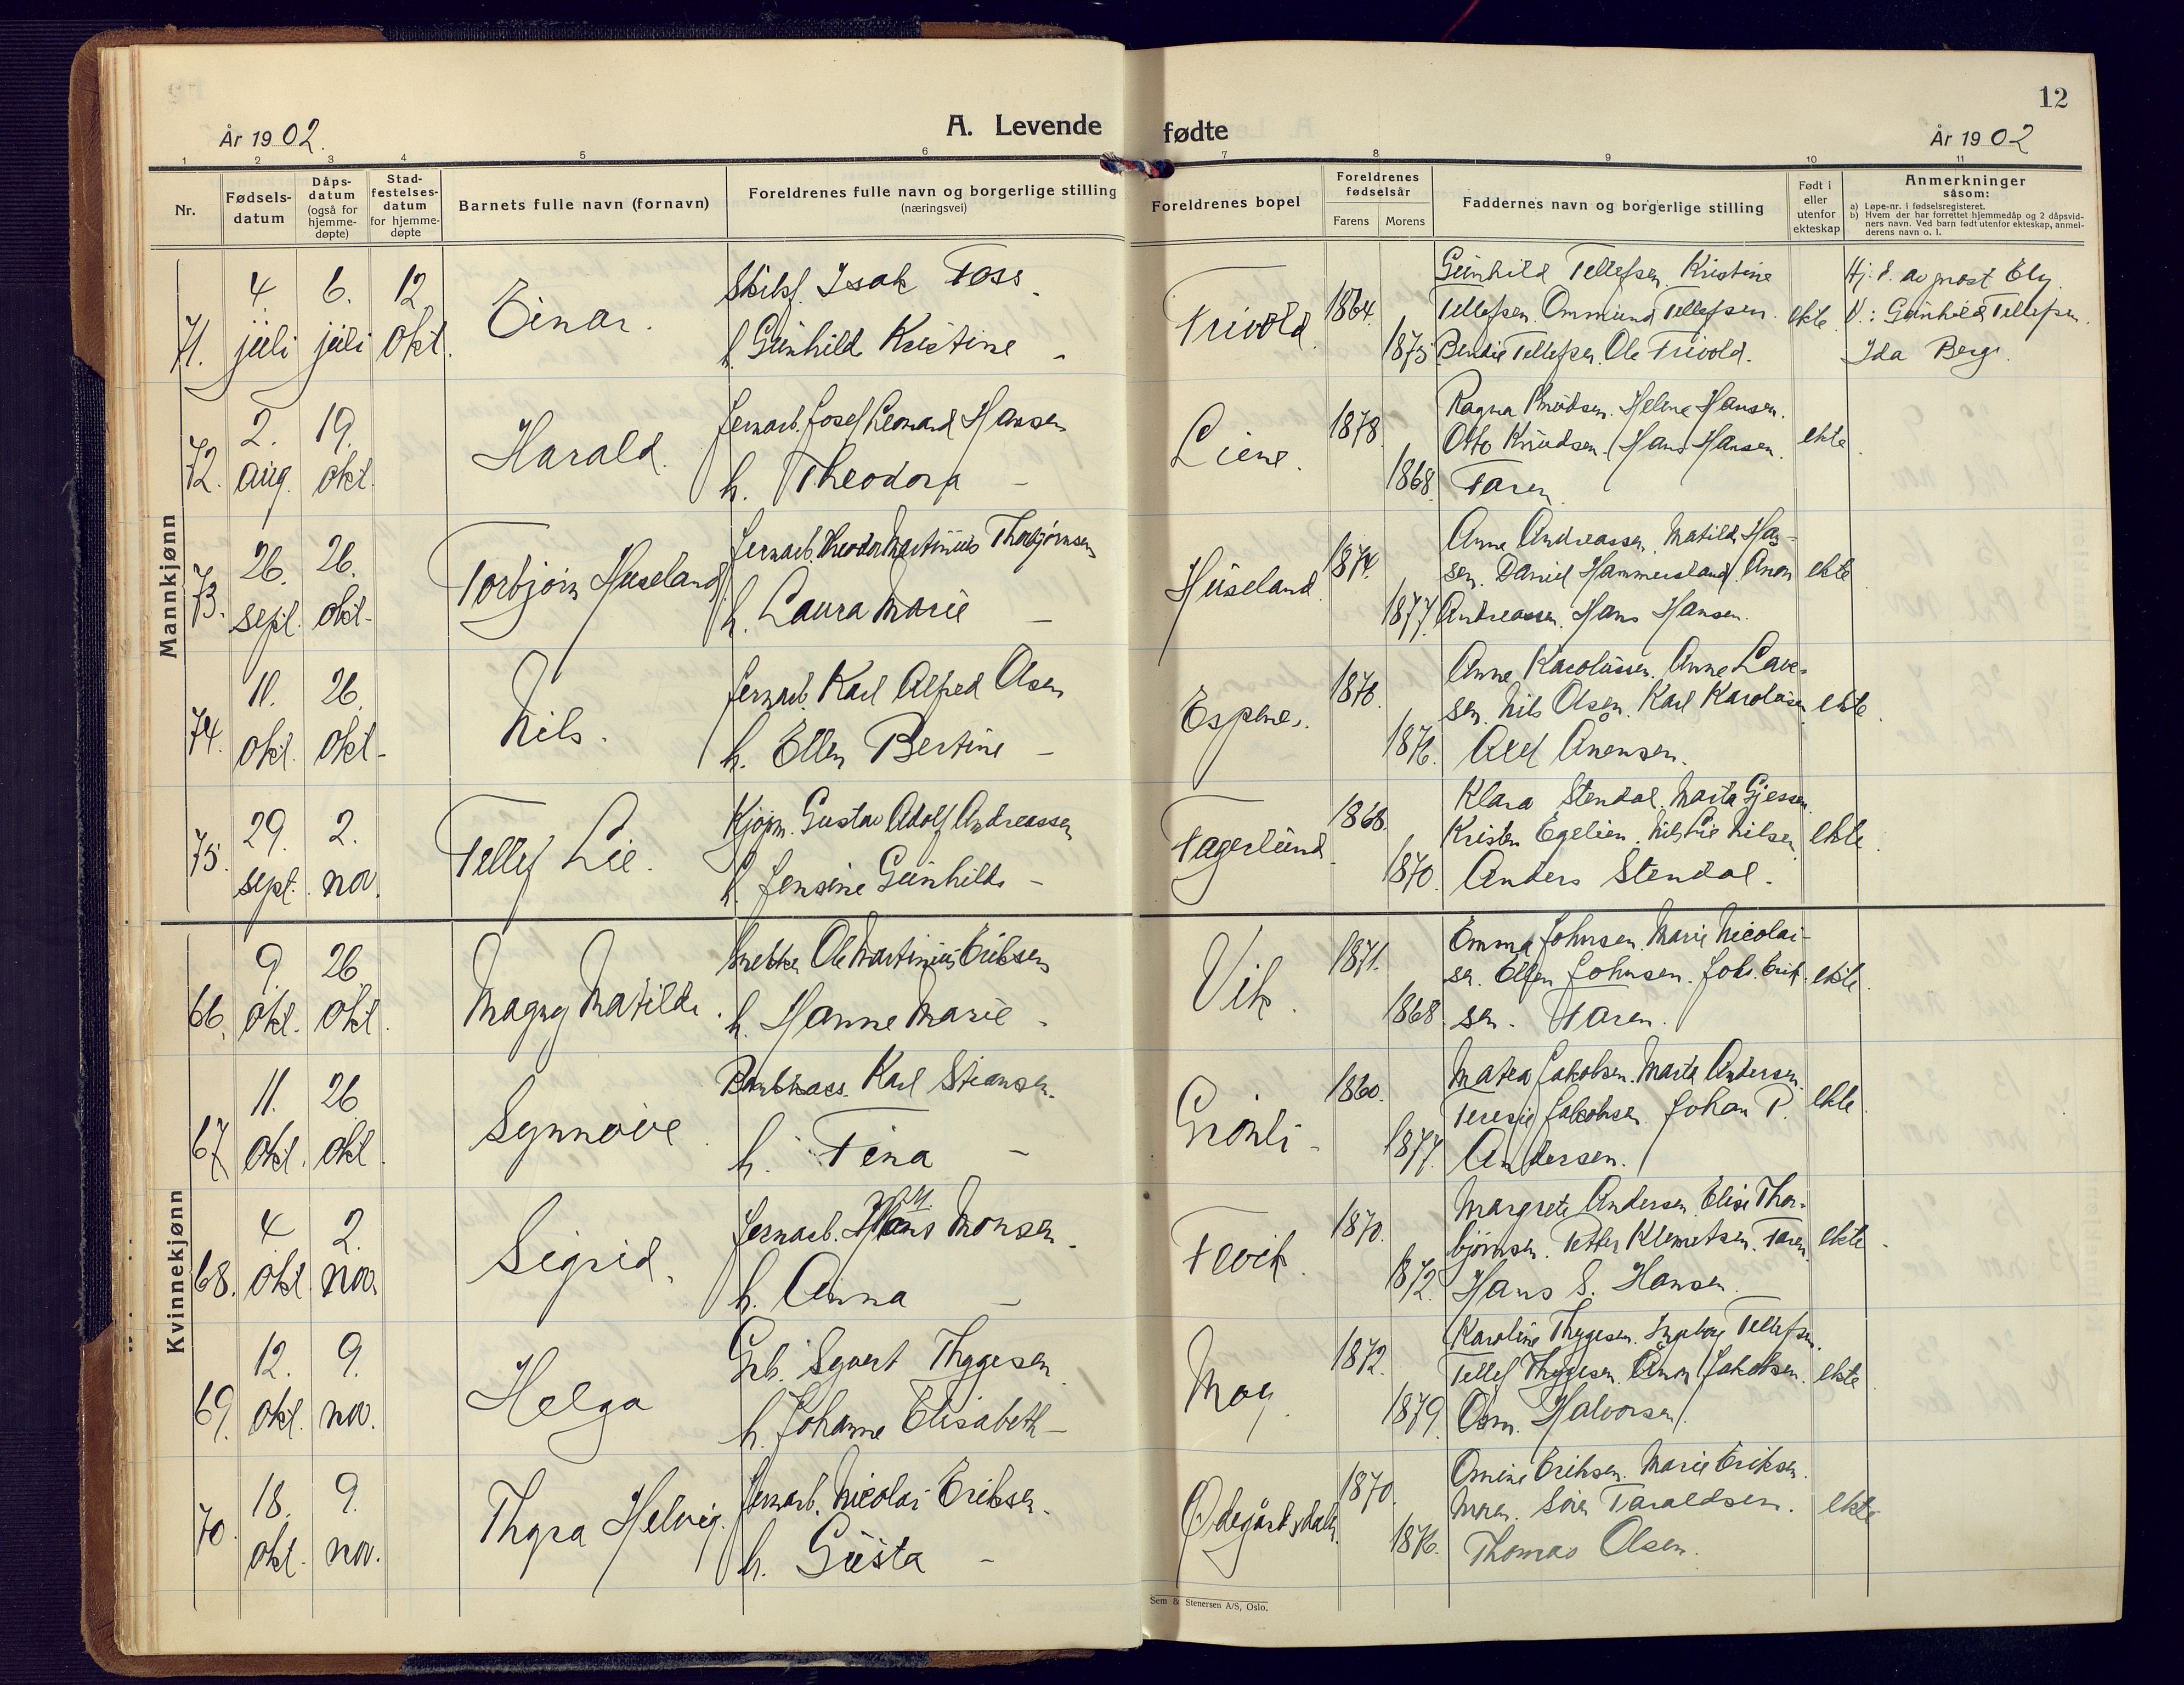 12
År 1902.
A. Levende fødte
År 1902
1 2 3 4 5 6 7 8 9 10 11
Nr.
Fødsels-
datum
Dåps-
datum
(også for
hjemme-
døpte)
Stad-
festelses-
datum
for hjemme-
døpte
Barnets fulle navn (fornavn)
Foreldrenes fulle navn og borgerlige stilling
(næringsvei)
Foreldrenes bopel
Foreldrenes
fødselsår
Farens Morens
Faddernes navn og borgerlige stilling
Født i
eller
utenfor
ekteskap
Anmerkninger
såsom:
a) Løpe-nr. i fødselsregisteret.
b) Hvem der har forrettet hjemmedåp og 2 dåpsvid-
ners navn. Ved barn født utenfor ekteskap, anmel-
derens navn o. l.
Mannkjønn
71.
4 juli
6. juli
12 okt.
Einar.
Skibsf. Isak Foss
h. Gunhild Kristine -
Trivold
1864.
1875
Gunhild Tellefsen. Kristine
Tellefsen. Ommund Tellefsen.
Bendie Tellefsen. Ole Trivold.
ekte
Hj. d. av prost Ely.
V.: Gunhild Tellefsen.
Ida Berge.
72.
2. aug.
19. okt.
Harald.
Jernarb. Josef Leonard Hansen
h. Theodora -
Liene.
1878.
1868.
Ragna Knudsen. Helene Hansen.
Otto Knudsen. Hans Hansen.
Faren
ekte
73.
26. sept.
26. okt.
Torbjørn Huseland
Jernarb. Theodor Martinius Thorbjørnsen
h. Laura Marie -
Huseland
1874.
1877.
Anne Andreassen. Matilde Han-
sen. Daniel Hammersland. Anon
Andreassen. Hans Hansen.
ekte
74.
11. okt.
26. okt.
Nils.
Jernarb. Karl Alfred Olsen
h. Ellen Bertine -
Espenes.
1876.
Anne Karolussen. Anne Lave-
sen. Nils Olsen. Karl Karolusen
Anensen.
ekte.
75.
29. sept.
2. nov.
Tellef Lie.
Gustav Adolf Andreassen
h. Jensine Gunhilde -
Fagerlund.
1868.
1870.
Klara Stendal. Marta Gjessen.
Kristen Egelien. Nils Lie Nilsen.
Anders Stendal.
ekte.
Kvinnekjønn
66.
9. okt.
26. okt.
Magny Matilde.
Ole Martinius Eriksen
h. Hanne Marie -
Vik.
1871.
1868.
Emma Johnsen. Marie Nicolai-
sen. Ellen Johnsen. Johs. Erik-
sen. Faren.
ekte.
67
11. okt.
26 okt.
Synnøve.
Karl Stiansen.
h. Tina -
Grønli -
1860.
1877.
Matea Jakobsen. Marta Andersen.
Teresie Jakobsen. Johan P.
Andersen.
ekte
68.
4 okt.
2. nov.
Sigrid.
Jernarb. Monsen.
h. Anna -
Fevik.
1870.
1872.
Margrete Andersen. Elise Thor-
bjørnsen. Petter Klemetsen. Faren
Hans S. Hansen.
ekte.
69.
12. okt.
9. nov.
Helga
Grb. Syvert Thygesen
h. Johanne Elisabeth -
Moy.
1872.
1879.
Karoline Thygesen. Ingeborg Tellefsen.
Tellef Thygesen. Anon Jakobsen.
Osm. Halvorsen.
ekte
70.
18. okt.
9. nov.
Thyra Helvig.
Jernarb. Nicolai Eriksen.
h. Gusta -
Ødegårdsdalen.
1870.
1876.
Omine Eriksen. Marie Eriksen.
Moren. Søren Taraldsen.
Thomas Olsen.
ekte
Sem & Stenersen A/S, Oslo.